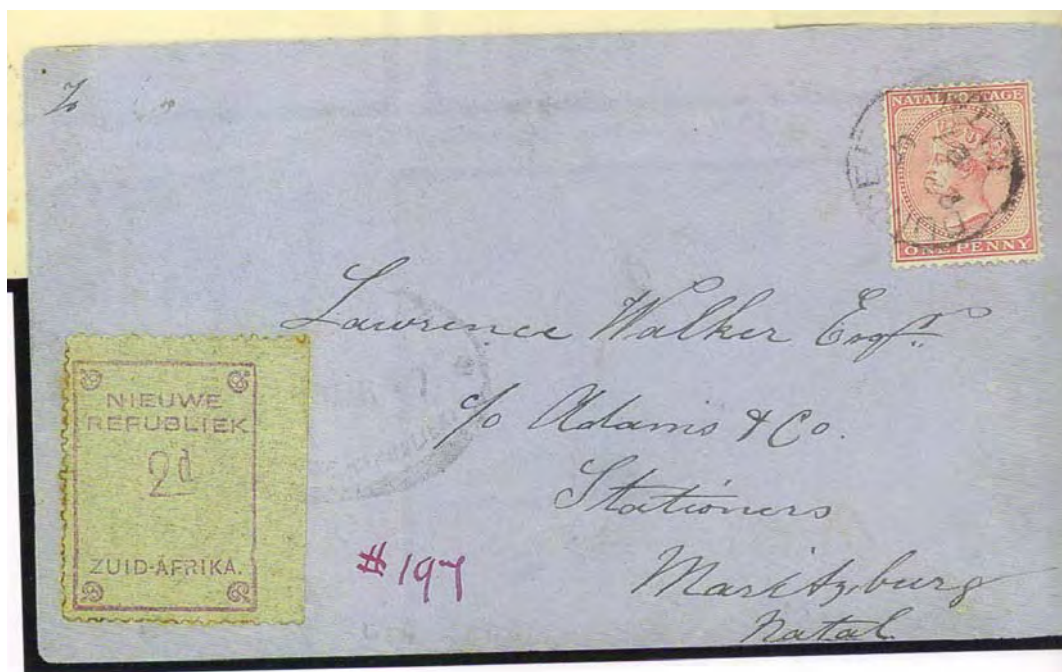 To
NATAL POSTAGE
ONE PENNY
Lawrence Walker Esqr.
c/o Adams & Co.
Stationers
Maritzburg
Natal
NIEUWE
REPUBLIEK
2d
ZUID-AFRIKA.
#197